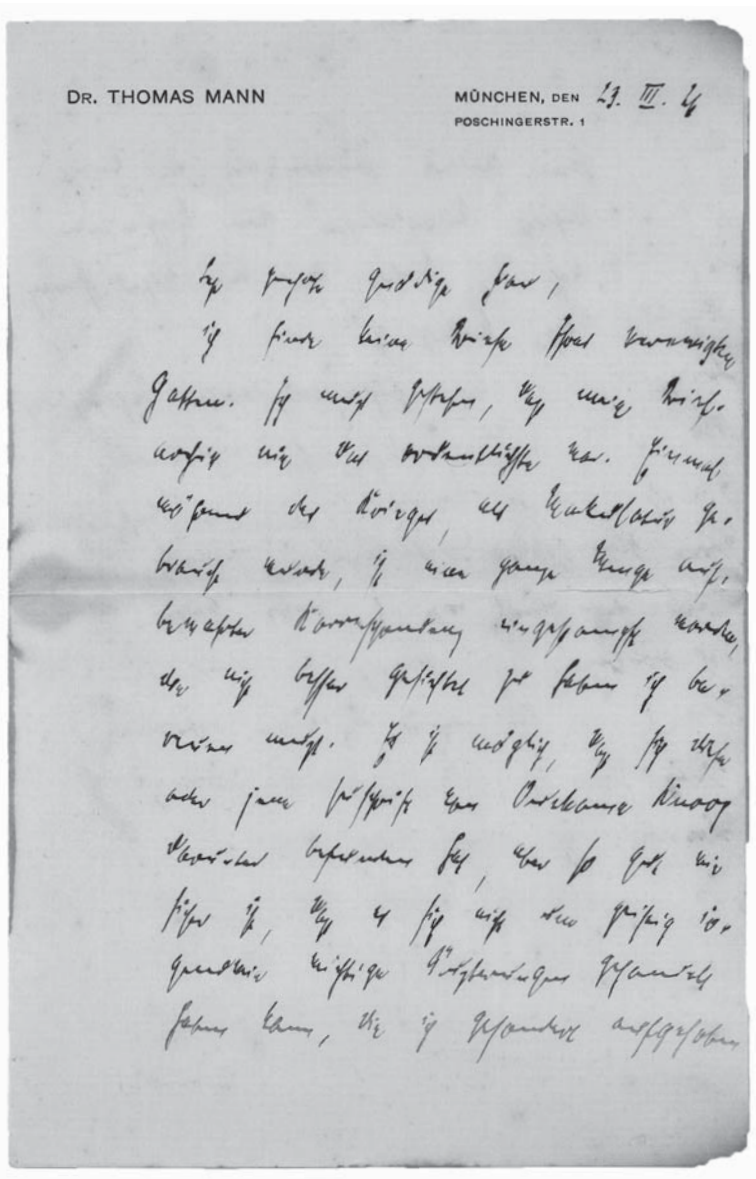 DR. THOMAS MANN
MÜNCHEN, DEN 23. III.
POSCHINGERSTR. 1
Sehr geehrte gnädige Frau,
ich finde keine Briefe Ihres verewigten
Gatten. Ich muß gestehen, daß mein Brief-
archiv nie das ordentlichste war. Einmal
während des Krieges, als Makulatur ge-
braucht wurde, ist eine ganze Menge auf-
bewahrter Korrespondenz eingestampft worden,
die nicht besser gesichtet zu haben ich be-
reuen muß. Es ist möglich, daß sich diese
oder jene Zuschrift von Ouckama Knoop
darunter befunden hat, aber so gut wie
sicher ist, daß es sich nicht um geistig ir-
gendwie wichtige Äußerungen gehandelt
haben kann, die ich gesondert aufgehoben